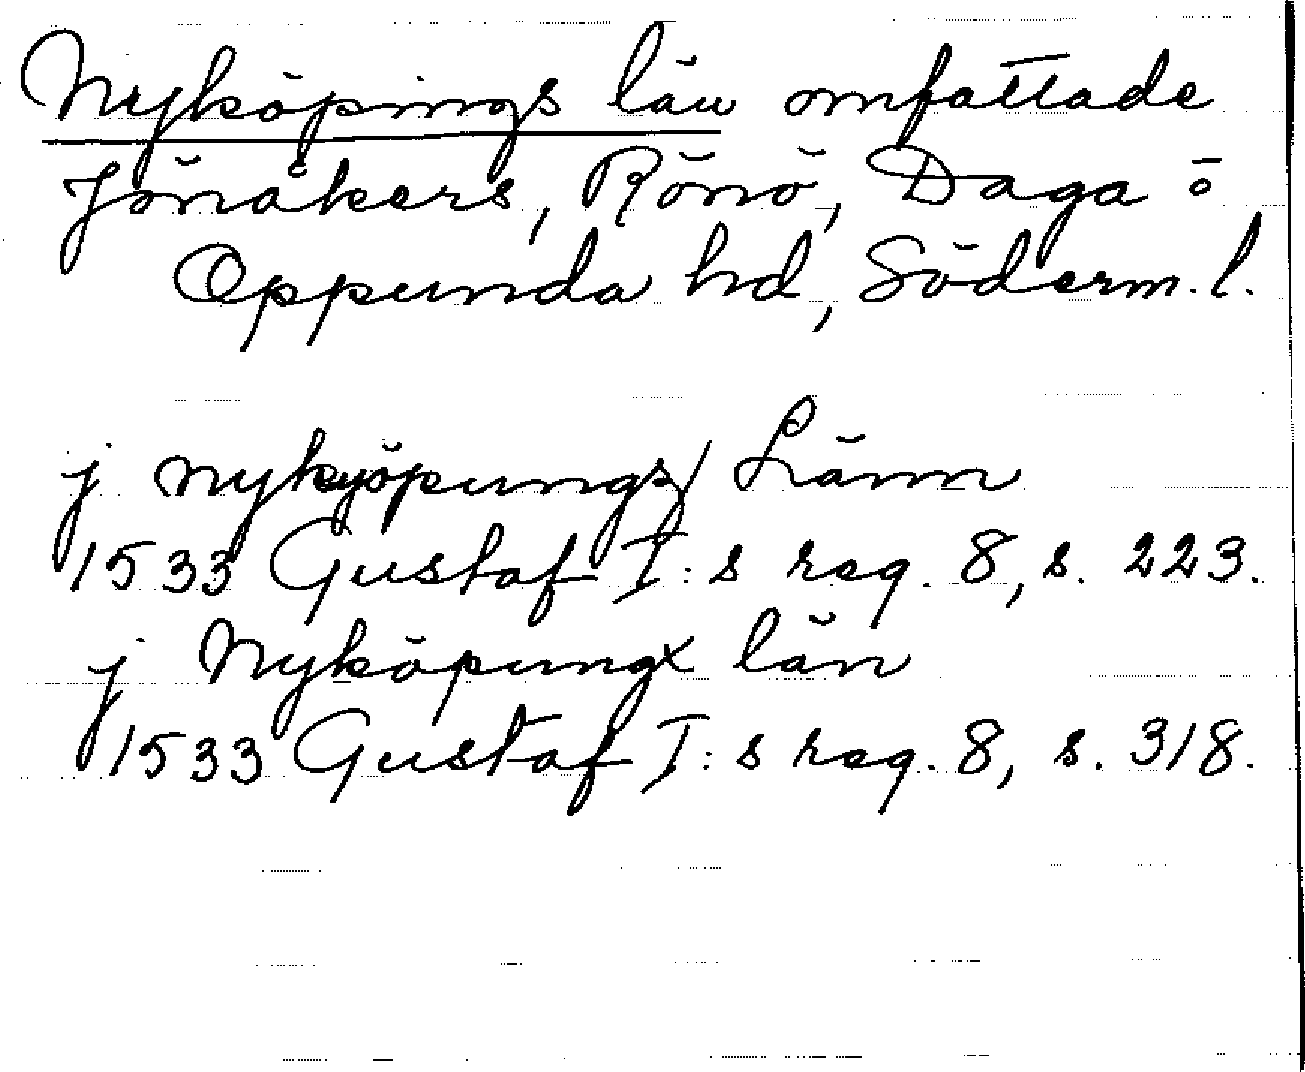 Nyköpings län omfattade
Jönåkers, Rönö, Daga o
Oppunda hd, Söderm. l.
j nykyöpungs/ Länn
1533 Gustaf I:s reg. 8, s. 223.
j Nyköpungx län
1533 Gustaf I:s reg. 8, s. 318.